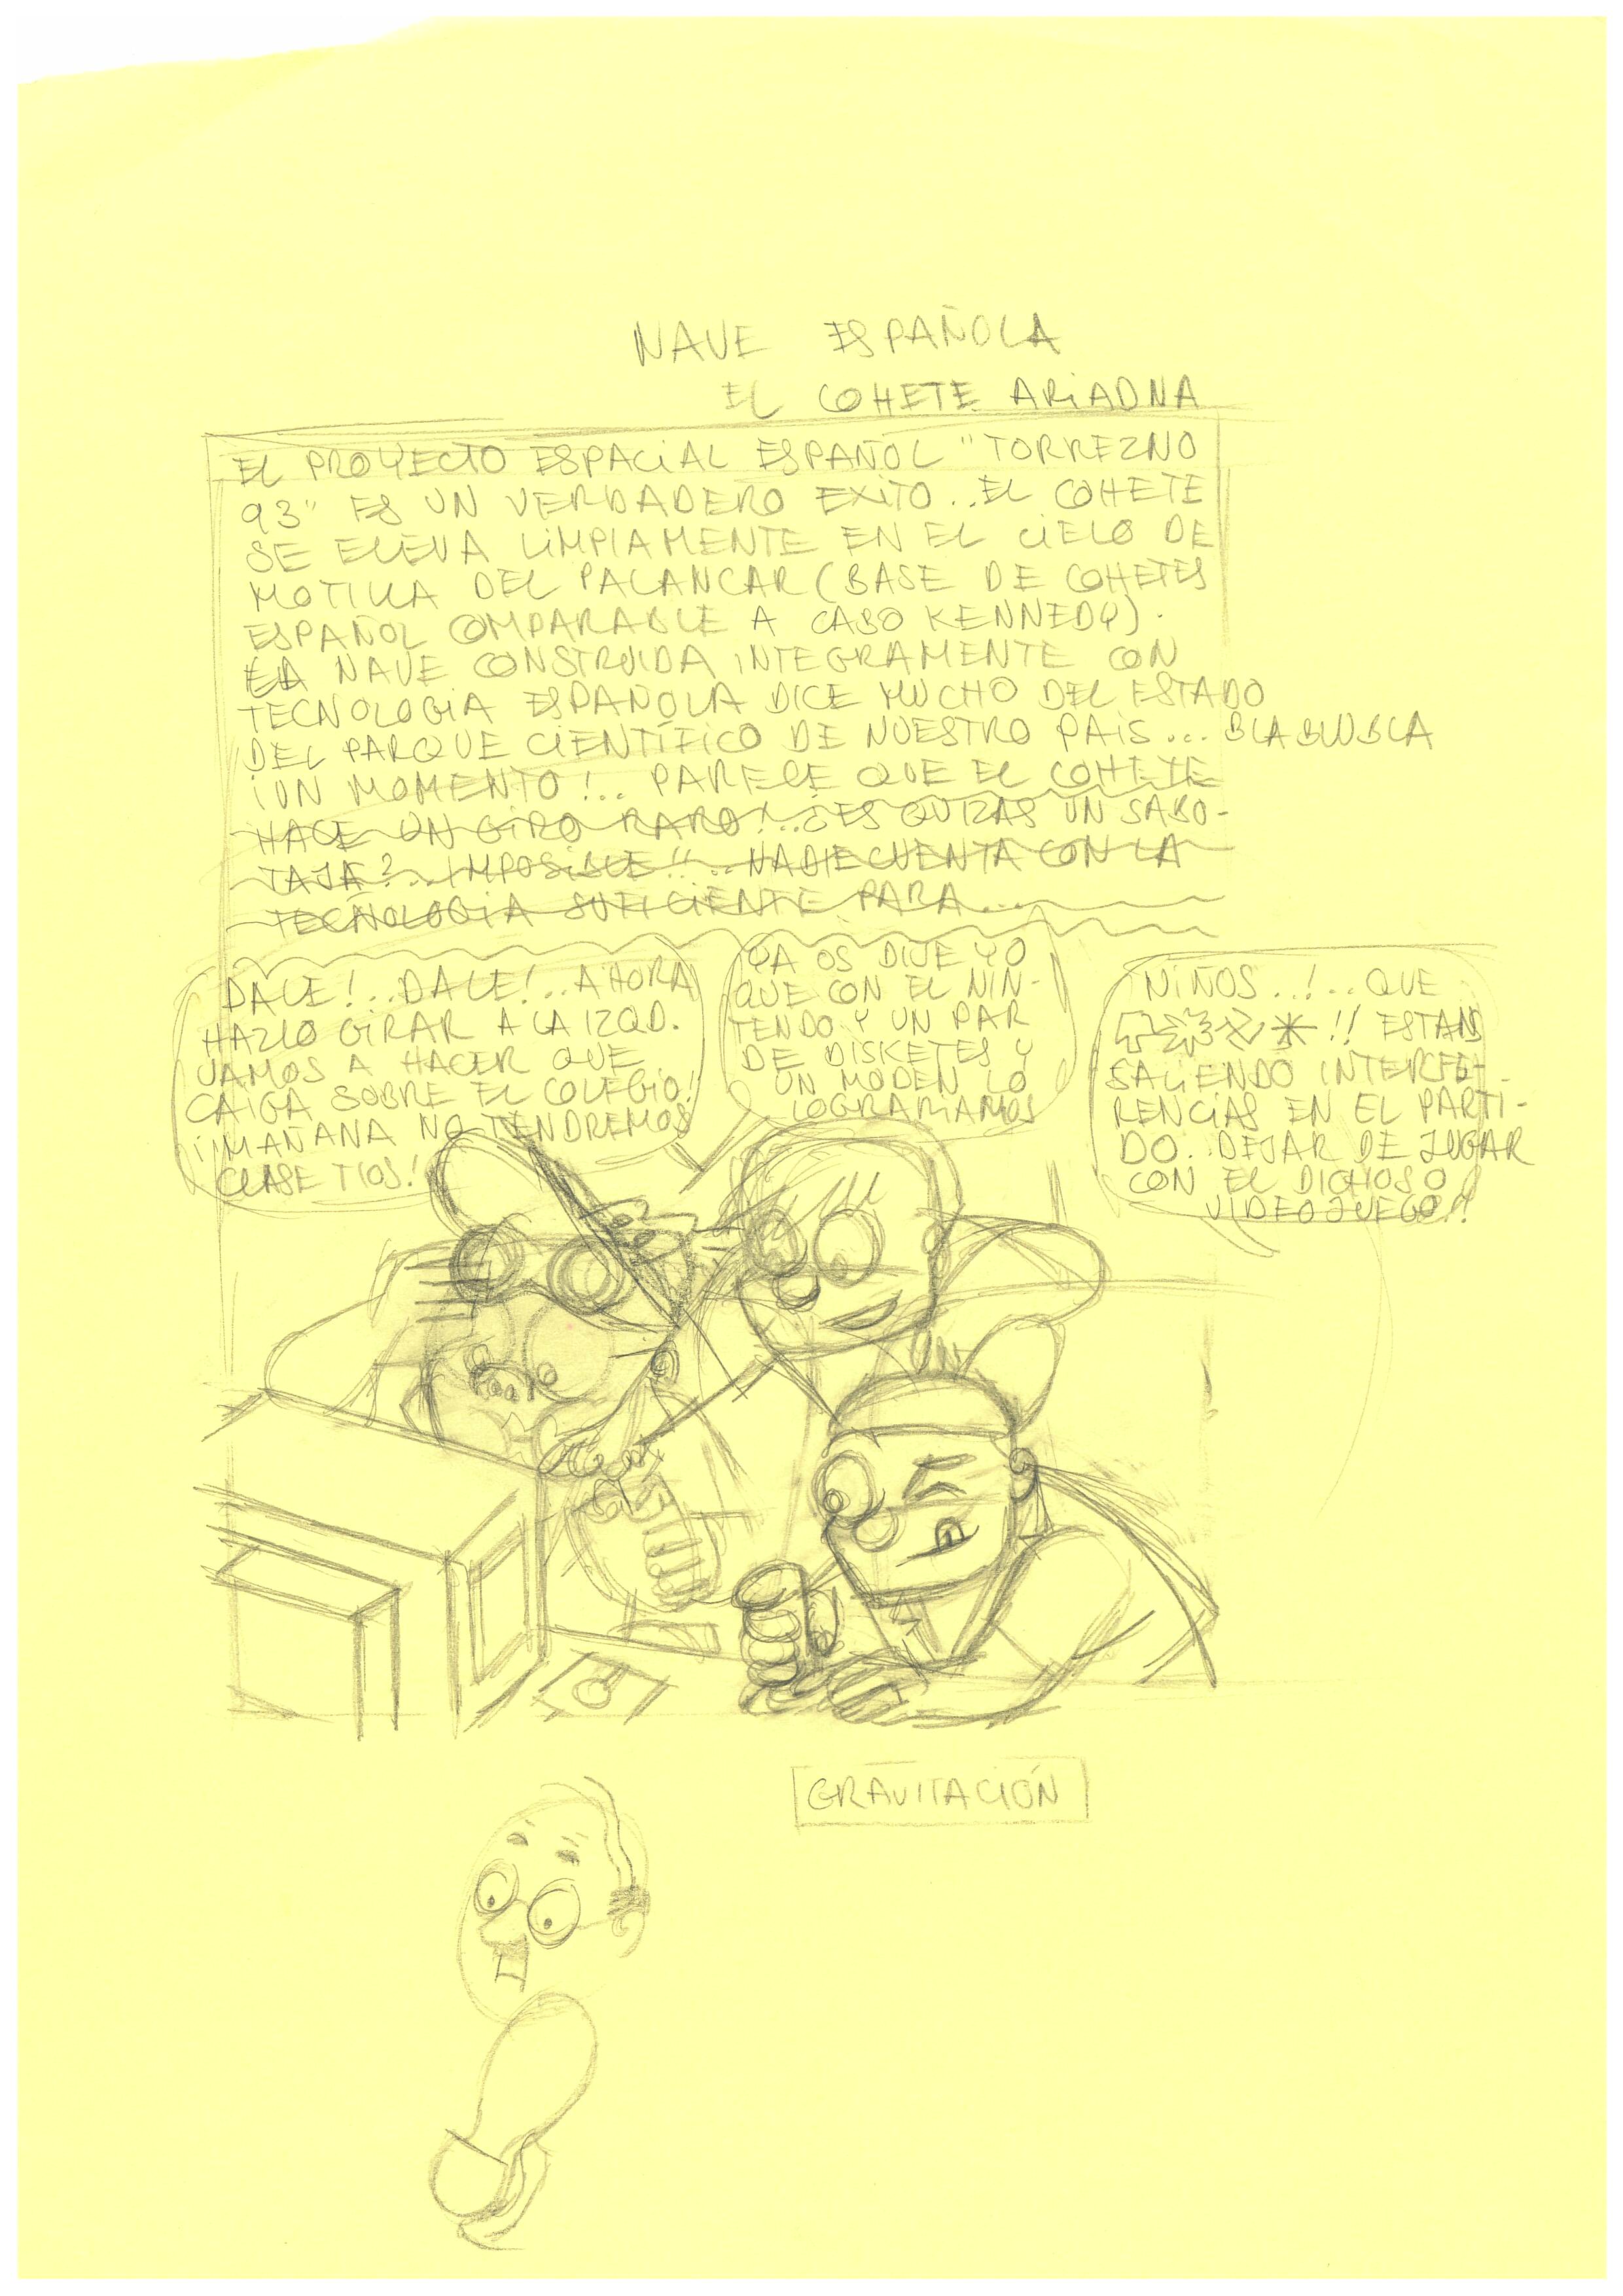 NAVE ESPAÑOLA
EL COHETE ARIADNA
EL PROYECTO ESPACIAL ESPAÑOL "TORREZNO
93" ES UN VERDADERO EXITO.. EL COHETE
SE ELEVA LIMPIAMENTE EN EL CIELO DE
MOTILLA DEL PALANCAR (BASE DE COHETES
ESPAÑOL COMPARABLE A CABO KENNEDY).
LA NAVE CONSTRUIDA INTEGRAMENTE CON
TECNOLOGIA ESPAÑOLA DICE MUCHO DEL ESTADO
DEL PARQUE CIENTÍFICO DE NUESTRO PAIS... BLABLUBLA
¡UN MOMENTO!.. PARECE QUE EL COHETE
HACE UN GIRO RARO!..¿ES QUIZAS UN SABO-
TAJE?..IMPOSIBLE!!..NADIE CUENTA CON LA
TECNOLOGIA SUFICIENTE PARA...
DALE!..DALE!..AHORA
HAZLO GIRAR A LA IZQD.
VAMOS A HACER QUE
CAIGA SOBRE EL COLEGIO!
¡MAÑANA NO TENDREMOS
CLASE TIOS!
YA OS DIJE YO
QUE CON EL NIN-
TENDO Y UN PAR
DE DISKETES Y
UN MODEN LO
LOGRARIAMOS
NIÑOS..!..QUE
!! ESTAIS
SALIENDO INTERFE-
RENCIAS EN EL PARTI-
DO. DEJAR DE JUGAR
CON EL DICHOSO
VIDEOJUEGO!!
GRAVITACIÓN